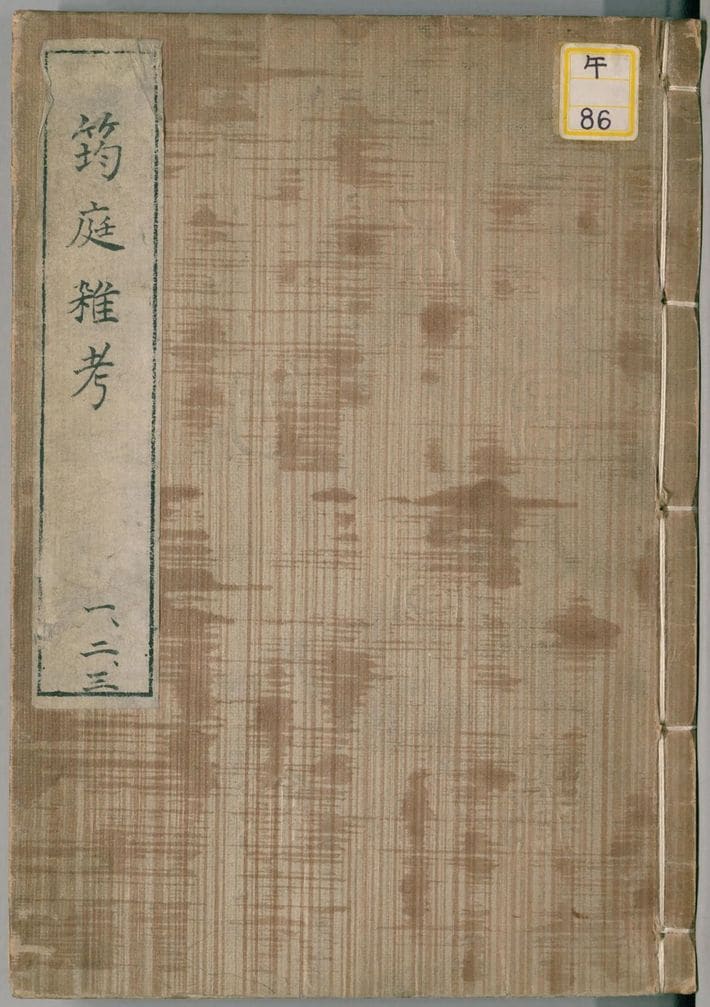 午
86
筠庭雑考
一、二、三